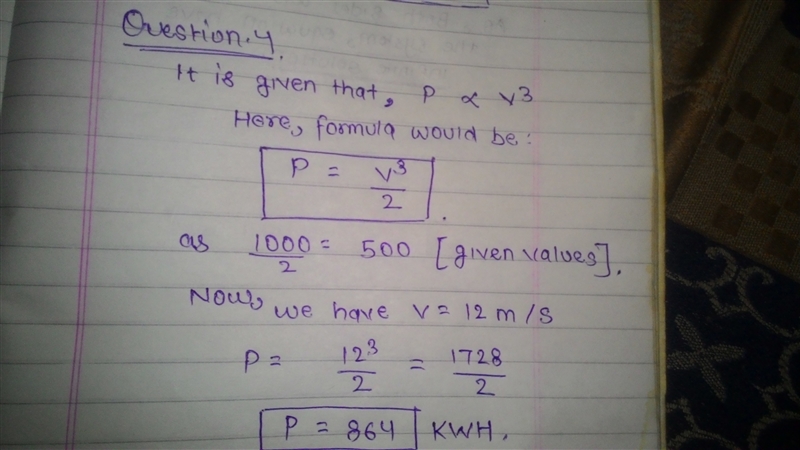 Question.4.
It is given that, P ∝ v³
Here, formula would be:
P = v³/2.
as 1000/2 = 500 [given values].
Now, we have v = 12 m/s
P = 12³/2 = 1728/2
P = 864 KWH.